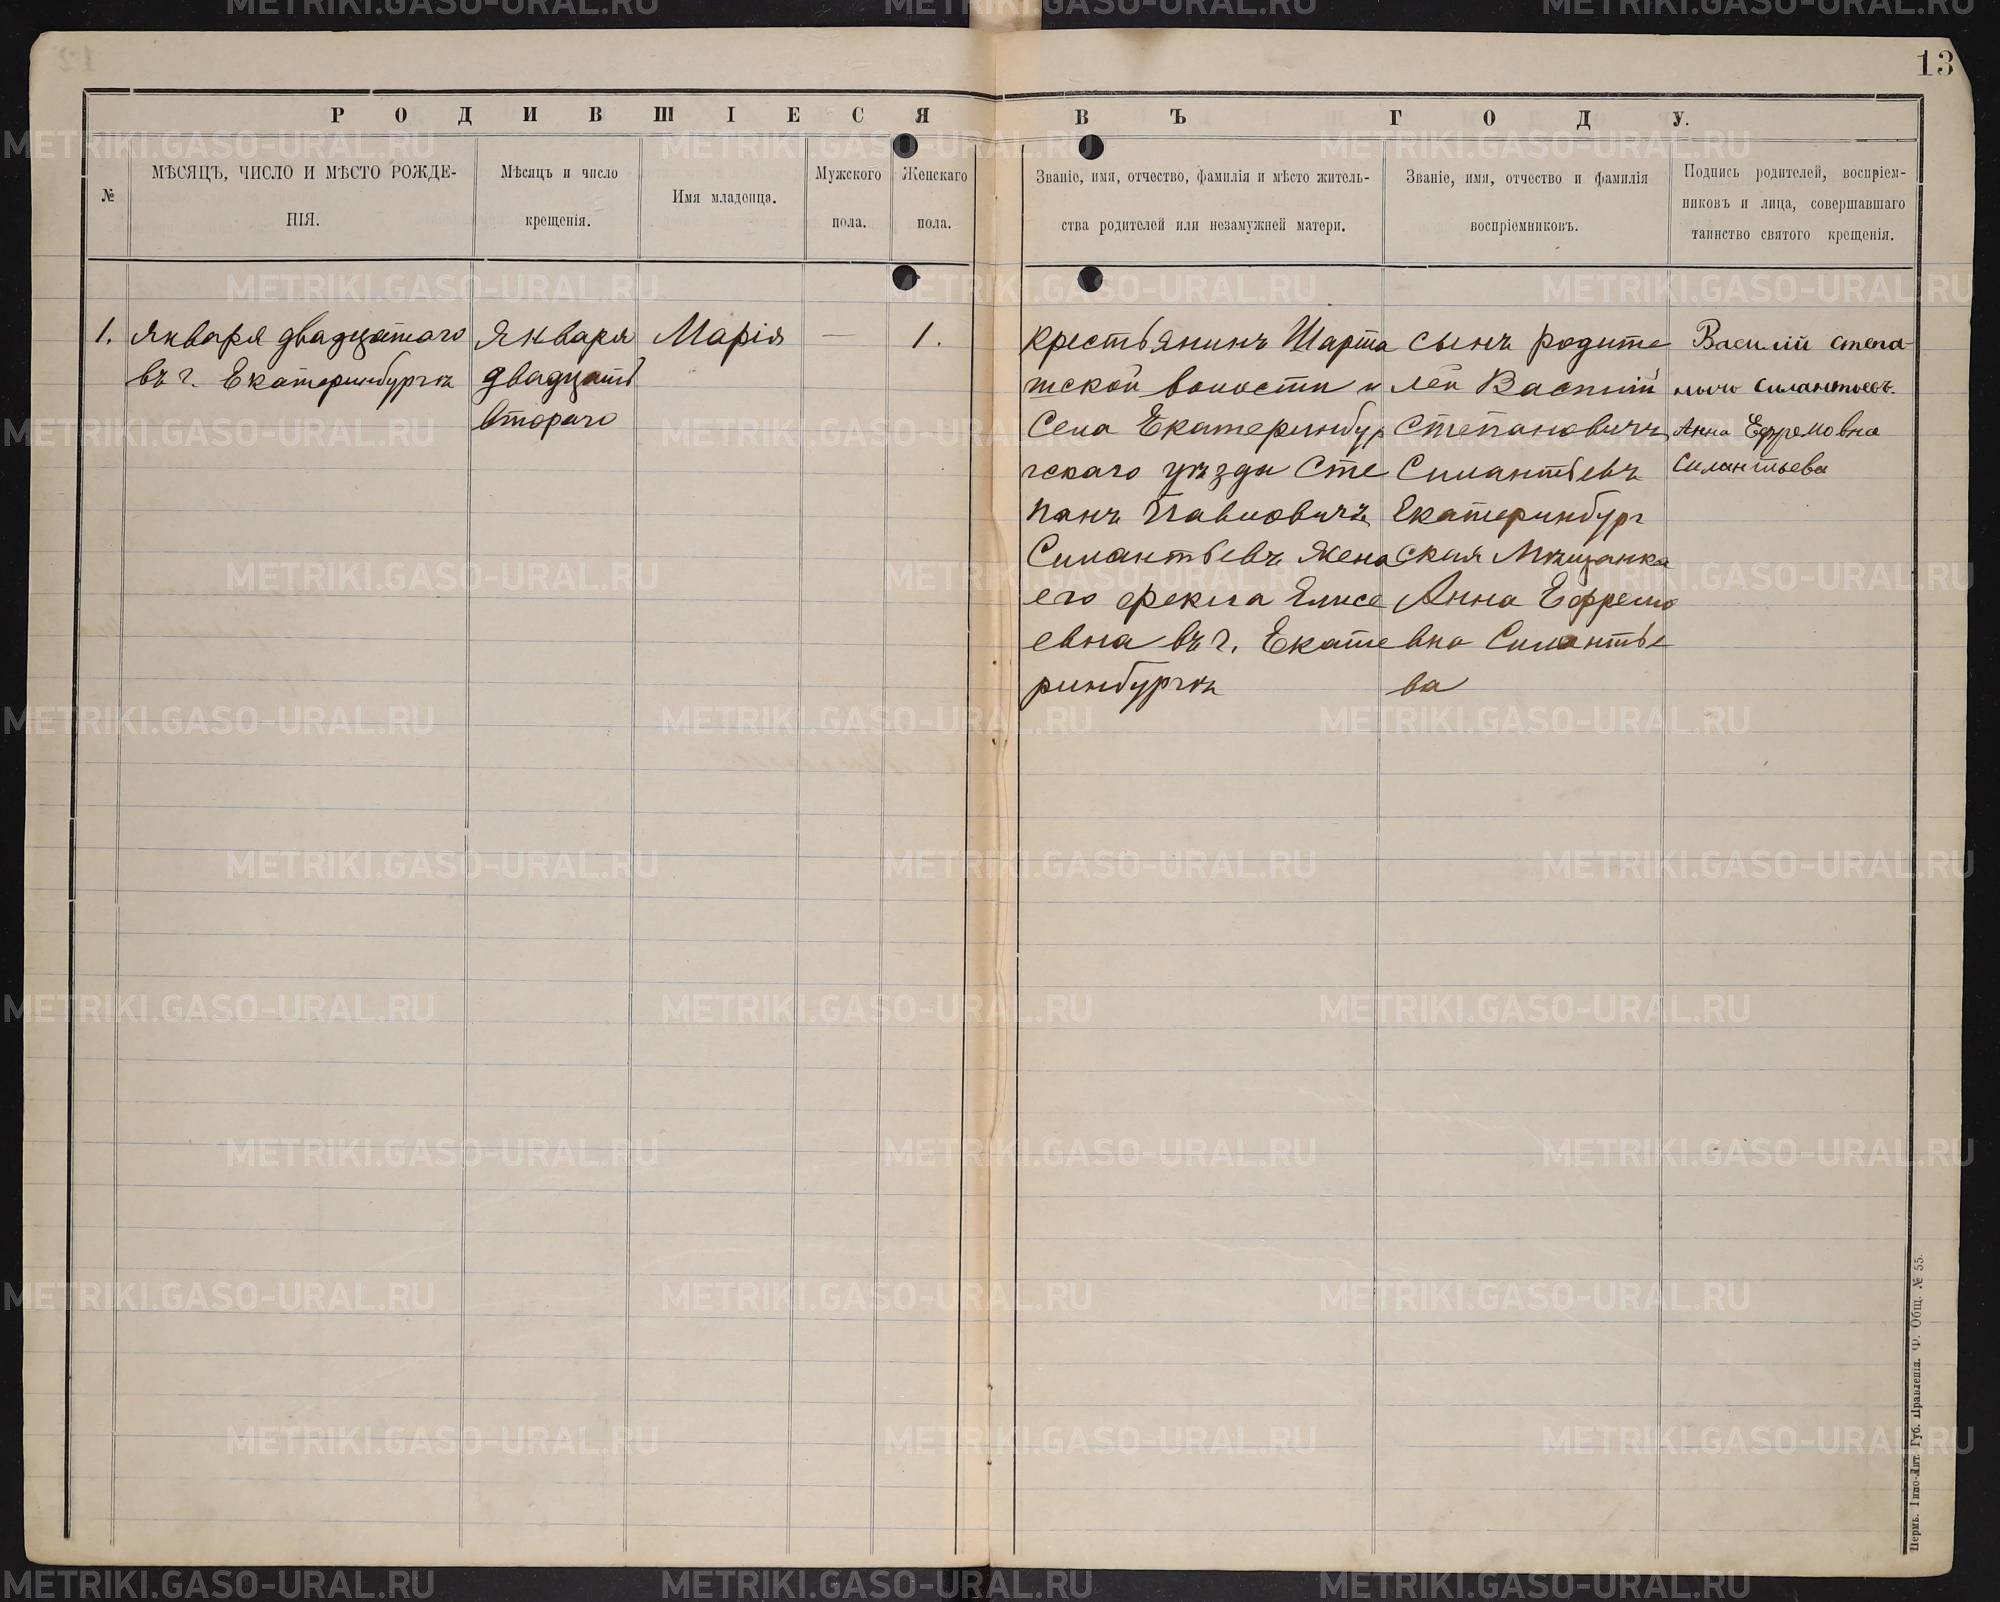 13
РОДИВШІЕСЯ ВЪ ГОДУ.
№
МѢСЯЦЪ, ЧИСЛО И МѢСТО РОЖДЕ-
НІЯ.
Мѣсяцъ и число
крещенія.
Имя младенца.
Мужского
пола.
Женскаго
пола.
Званіе, имя, отчество, фамилія и мѣсто житель-
ства родителей или незамужней матери.
Званіе, имя, отчество и фамилія
воспріемниковъ.
Подпись родителей, воспріем-
никовъ и лица, совершавшаго
таинство святого крещенія.
1.
Января двадцатаго
въ г. Екатеринбургѣ
Января
двадцать
втораго
Марія
—
1.
Крестьянинъ Шарта
тской волости и
Села Екатеринбур
гскаго уѣзда Сте
панъ Павловичъ
Силантьевъ жена
его Фекла Елисе
евна въ г. Екате
ринбургѣ
сынъ родите
лей Василий
Степановичъ
Силантьевъ
Екатеринбург
ская Мѣщанка
Анна Ефремо
вна Силантье
ва
Василій степа-
нычо силантьевъ.
Анна Ефремовна
Силантьева
Пермь. Типо-Лит. Губ. Правленія. Ф. Общ. № 55.
METRIKI.GASO-URAL.RU